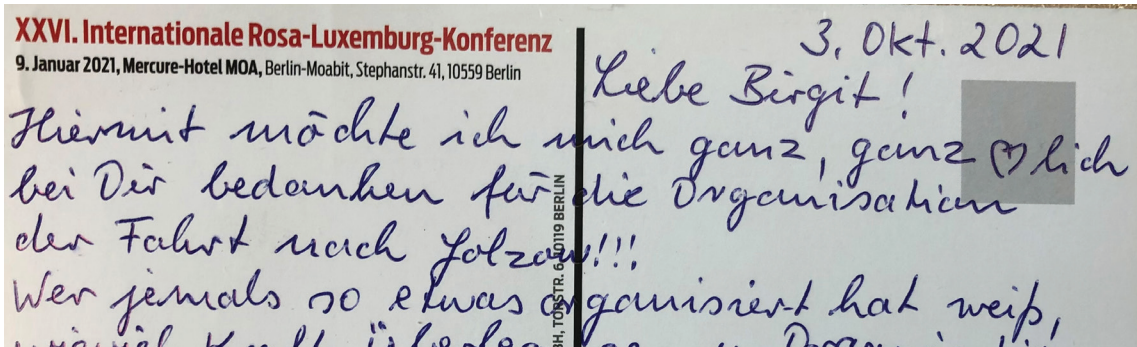 XXVI. Internationale Rosa-Luxemburg-Konferenz
9. Januar 2021, Mercure-Hotel MOA, Berlin-Moabit, Stephanstr. 41, 10559 Berlin
3. Okt. 2021
Liebe Birgit!
Hiermit möchte ich mich ganz, ganz ♡lich
bei Dir bedanken für die Organisation
der Fahrt nach Jolzow!!!
Wer jemals so etwas organisiert hat weiß,
wieviel Kraft
BH, TORSTR. 6, 10119 BERLIN